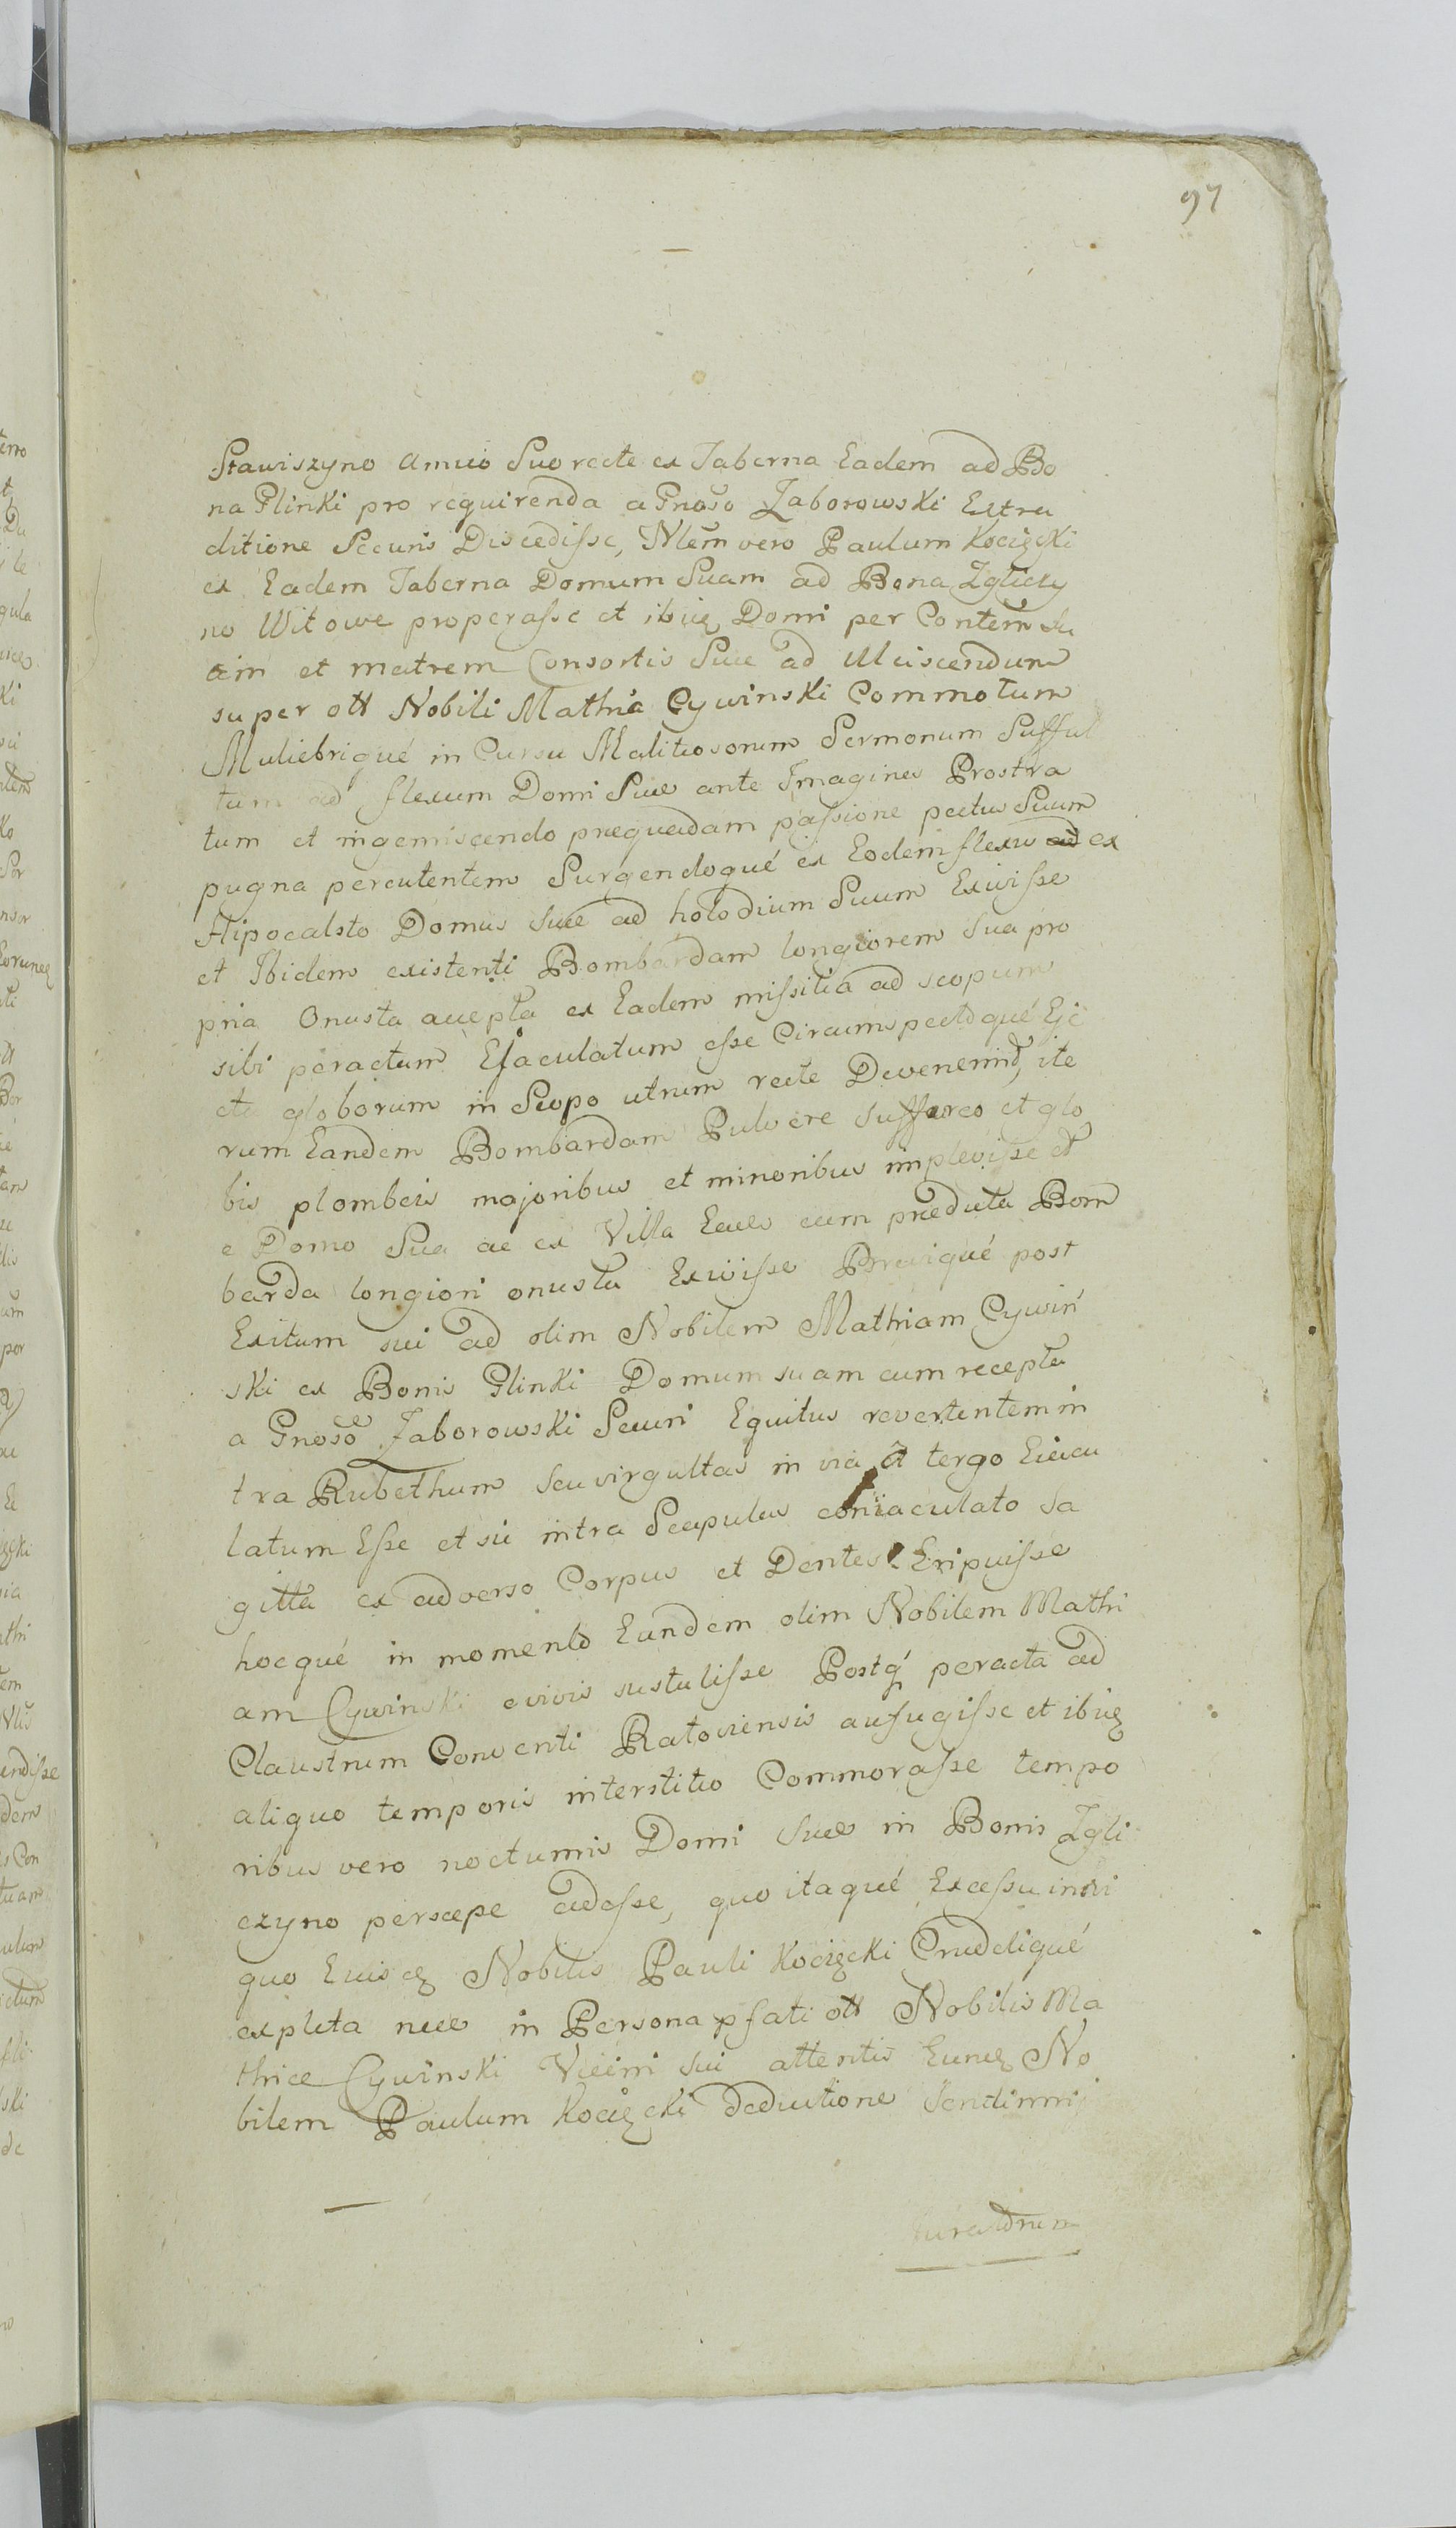 97
Stawiszyno Amico Suo recte ex Taberna Eadem ad Bo
na Glinki pro requirenda a Gnoso Zaborowski Extra
ditione Securis Discedisse, Nlem vero Paulum Kocięcki
ex Eadem Taberna Domum Suam ad Bona Zgliczy
no Witowe properasse et ibiq Domi per Contem Su
am et matrem Consortis Suae ad Ulciscendum
super ott Nobili Mathia Cywinski Commotum
Muliebriqué in Cursu Malitiosorum Sermonum Sufful
tum ad flexum Domi Suae ante Imagines Prostra
tum et ingemiscendo praequadam passione pectus Suum
pugna percutentem Surgendoqué ex Eodem flexu ex
Hipocalsto Domus Suae ad holodium Suum Exivisse
et Ibidem existenti Bombardam longiorem Sua pro
pria Onusta accepta ex Eadem missilia ad scopum
sibi peractum Ejaculatum esse Circumspectoqué Eje
ctu globorum in Scopo utrum recte Devenerint, ite
rum Eandem Bombardam Pulvere Suffureo et glo
bis plombeis majoribus et minoribus implevisse et
e Domo Sua ac ex Villa Eaes cum praedicta Bom
barda longiori onusta Exivisse Breviqué post
Exitum sui ad olim Nobilem Mathiam Cywiń
ski ex Bonis Glinki Domum suam cum recepta
a Gnoso Zaborowski Securi Equitus revertentem in
tra Rubethum Seu virgultas in via a tergo Eiacu
latum Esse et sic intra Scapulas coniaculato Sa
gitta ex adverso Corpus et Dentes Eripuisse
hocqué in momento Eundem olim Nobilem Mathi
am Cywinski e vivis sustulisse Postq peracta ad
Claustrum Conventi Ratoviensis aufugisse et ibiq
aliquo temporis interstitio Commorasse tempo
ribus vero nocturnis Domi Suae in Bonis Zgli
czyno persaepe adesse, quo itaqué Excessu ini
quo Euisq Nobilis Pauli Kocięcki Crudeliqué
expleta nece in Persona pfati ott Nobilis Ma
thiae Cywinski Vicini Sui attentis Eunq No
bilem Paulum Kocięcki deductione Sentimny